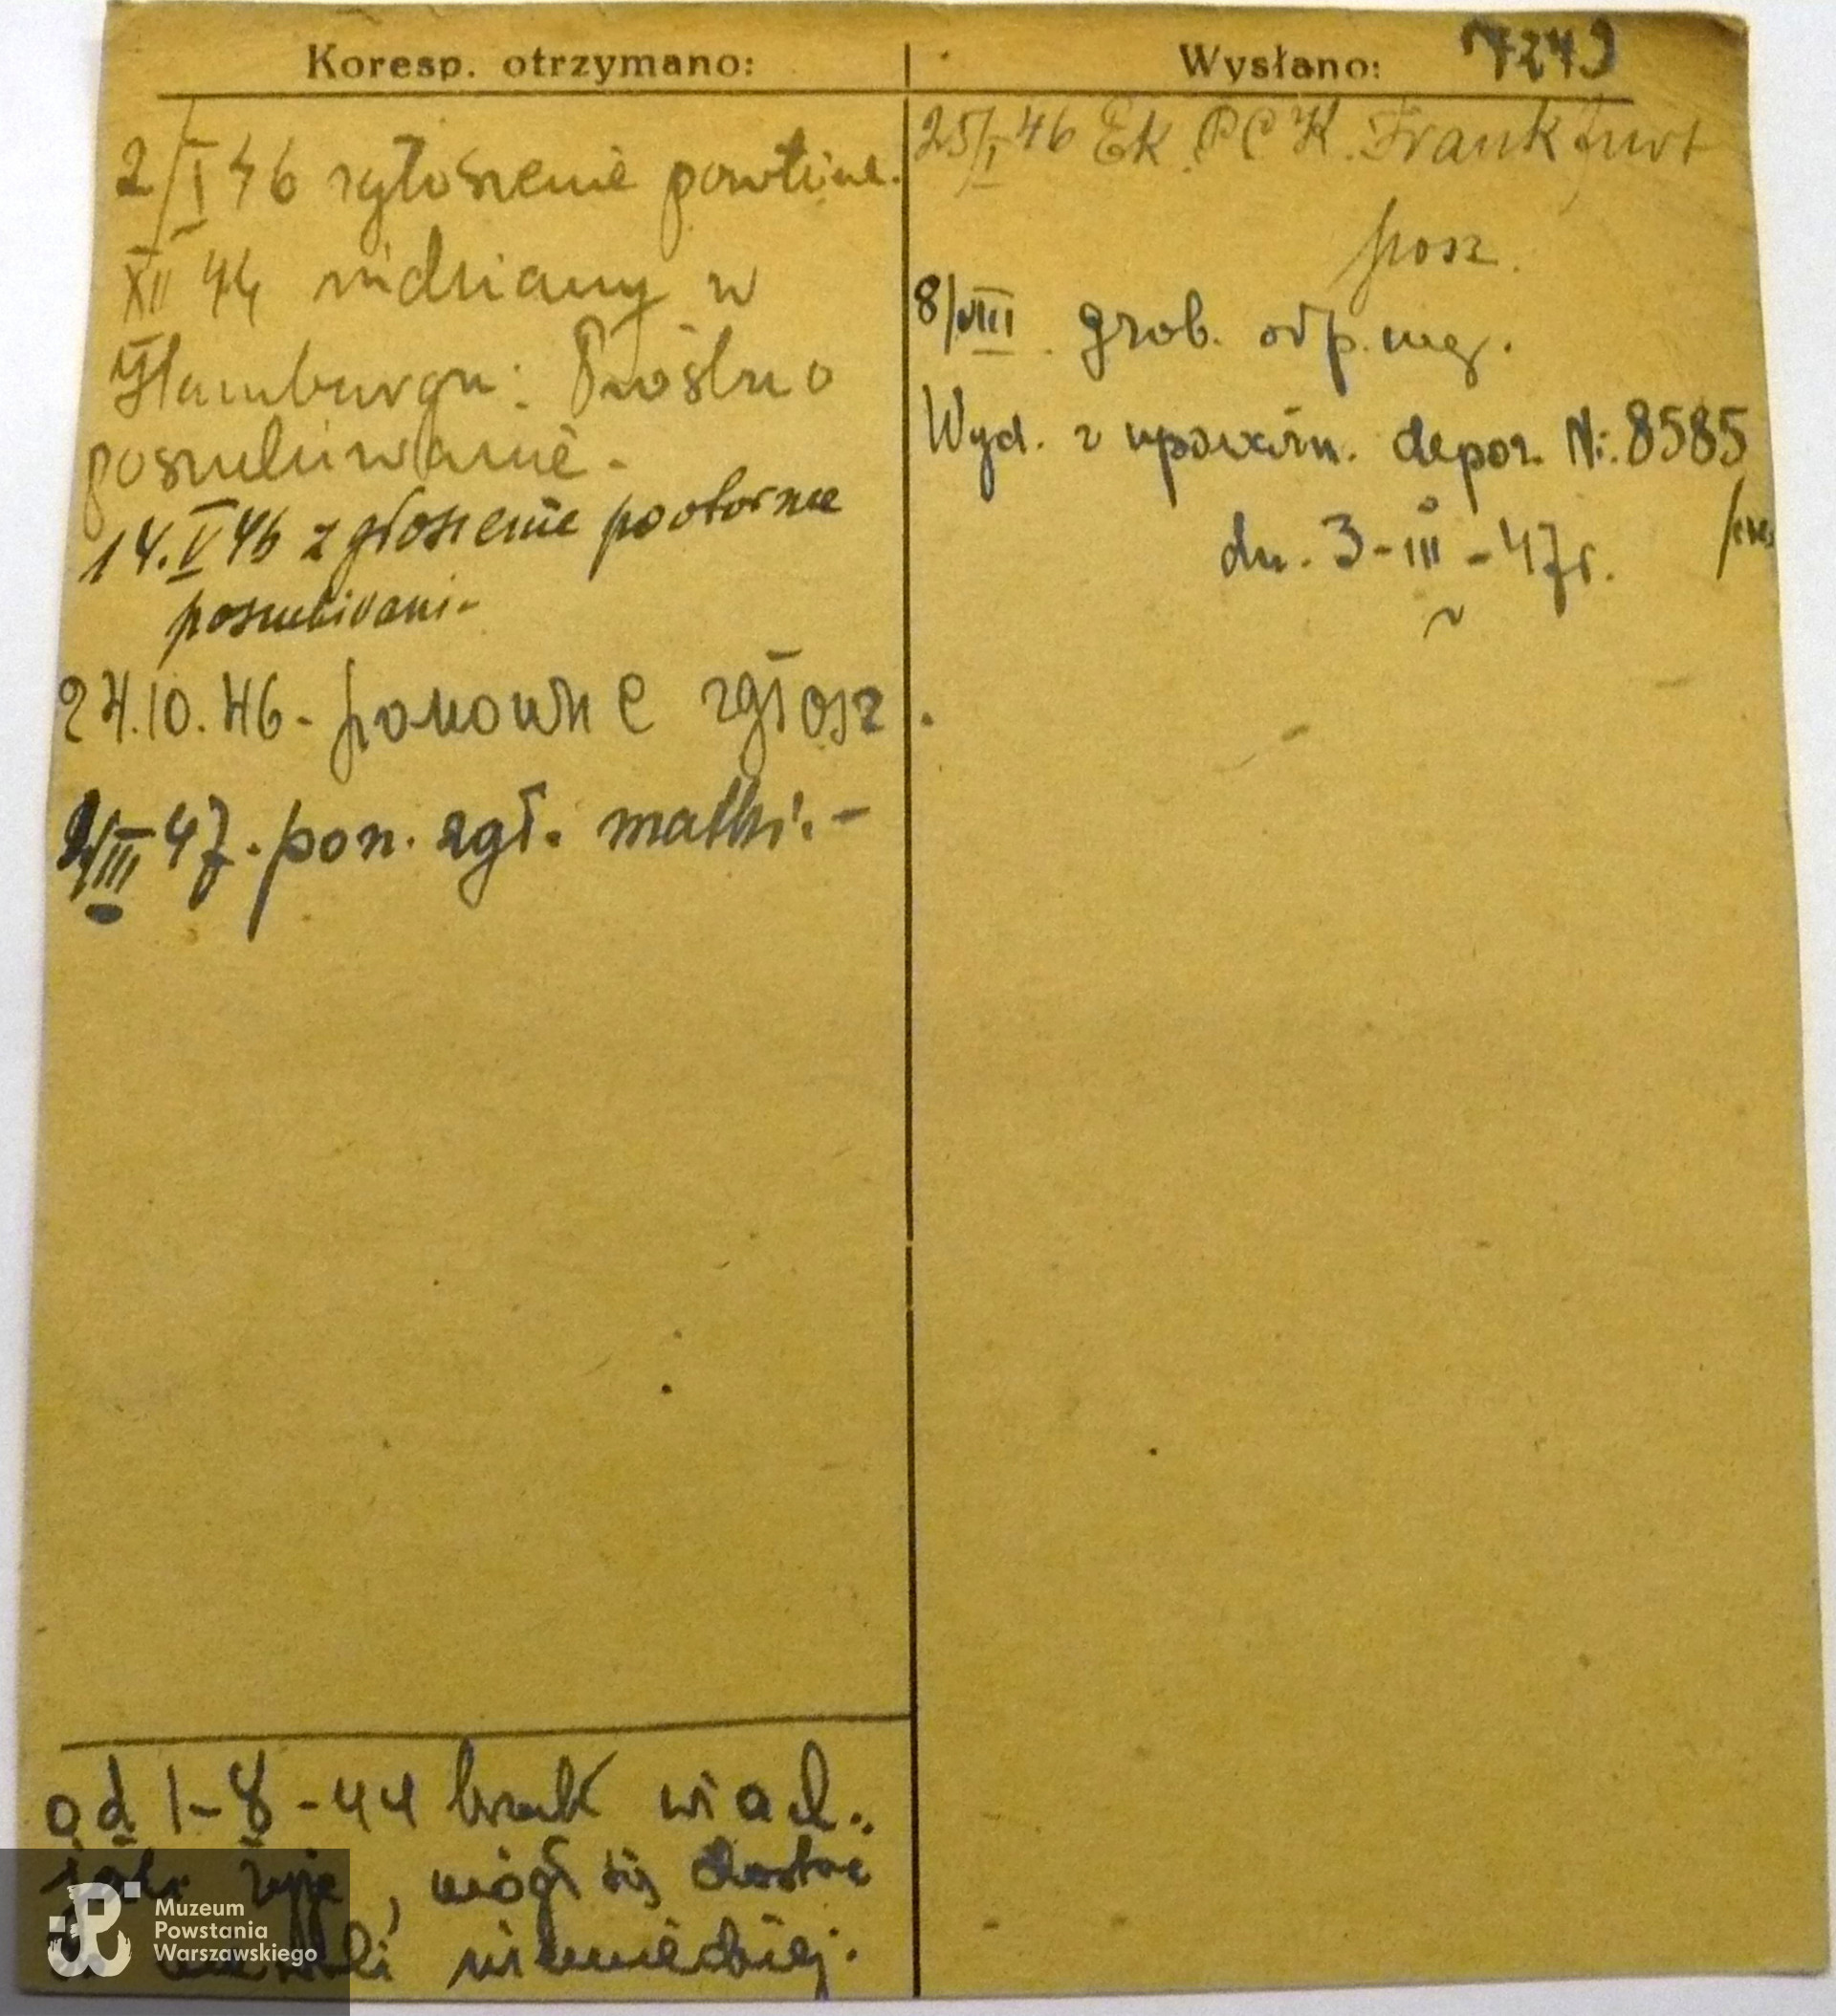 Koresp. otrzymano:
2/I 46 zgłoszenie powtórne.
XII 44 widziany w
Hamburgu:
poszukiwanie.
14.V 46 zgłoszenie powtórne
poszukiwani-
24.10.46 - ponowne zgłosz.
III 47. pon. zgł. matki. -
od 1-8-44 brak wiad.
żyje, mógł się dostać
niemieckiej.
Wysłano: 7249
25/I 46 Ek. PCK. Frankfurt
posz.
8/VIII. grob. odp. neg.
Wyd. depoz. Nr. 8585
dn. 3-III-47r.
Muzeum
Powstania
Warszawskiego